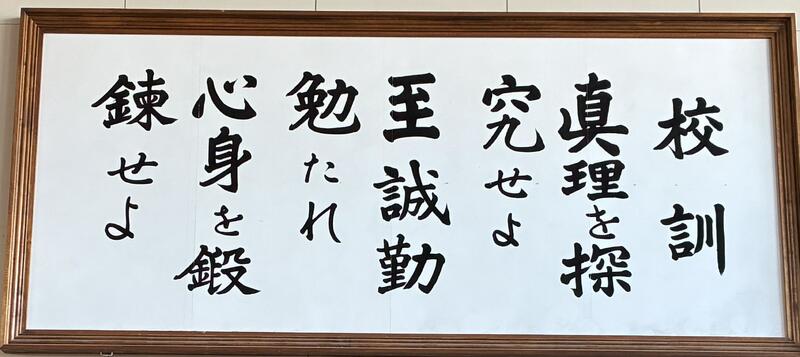 校訓
真理を探
究せよ
至誠勤
勉たれ
心身を鍛
錬せよ